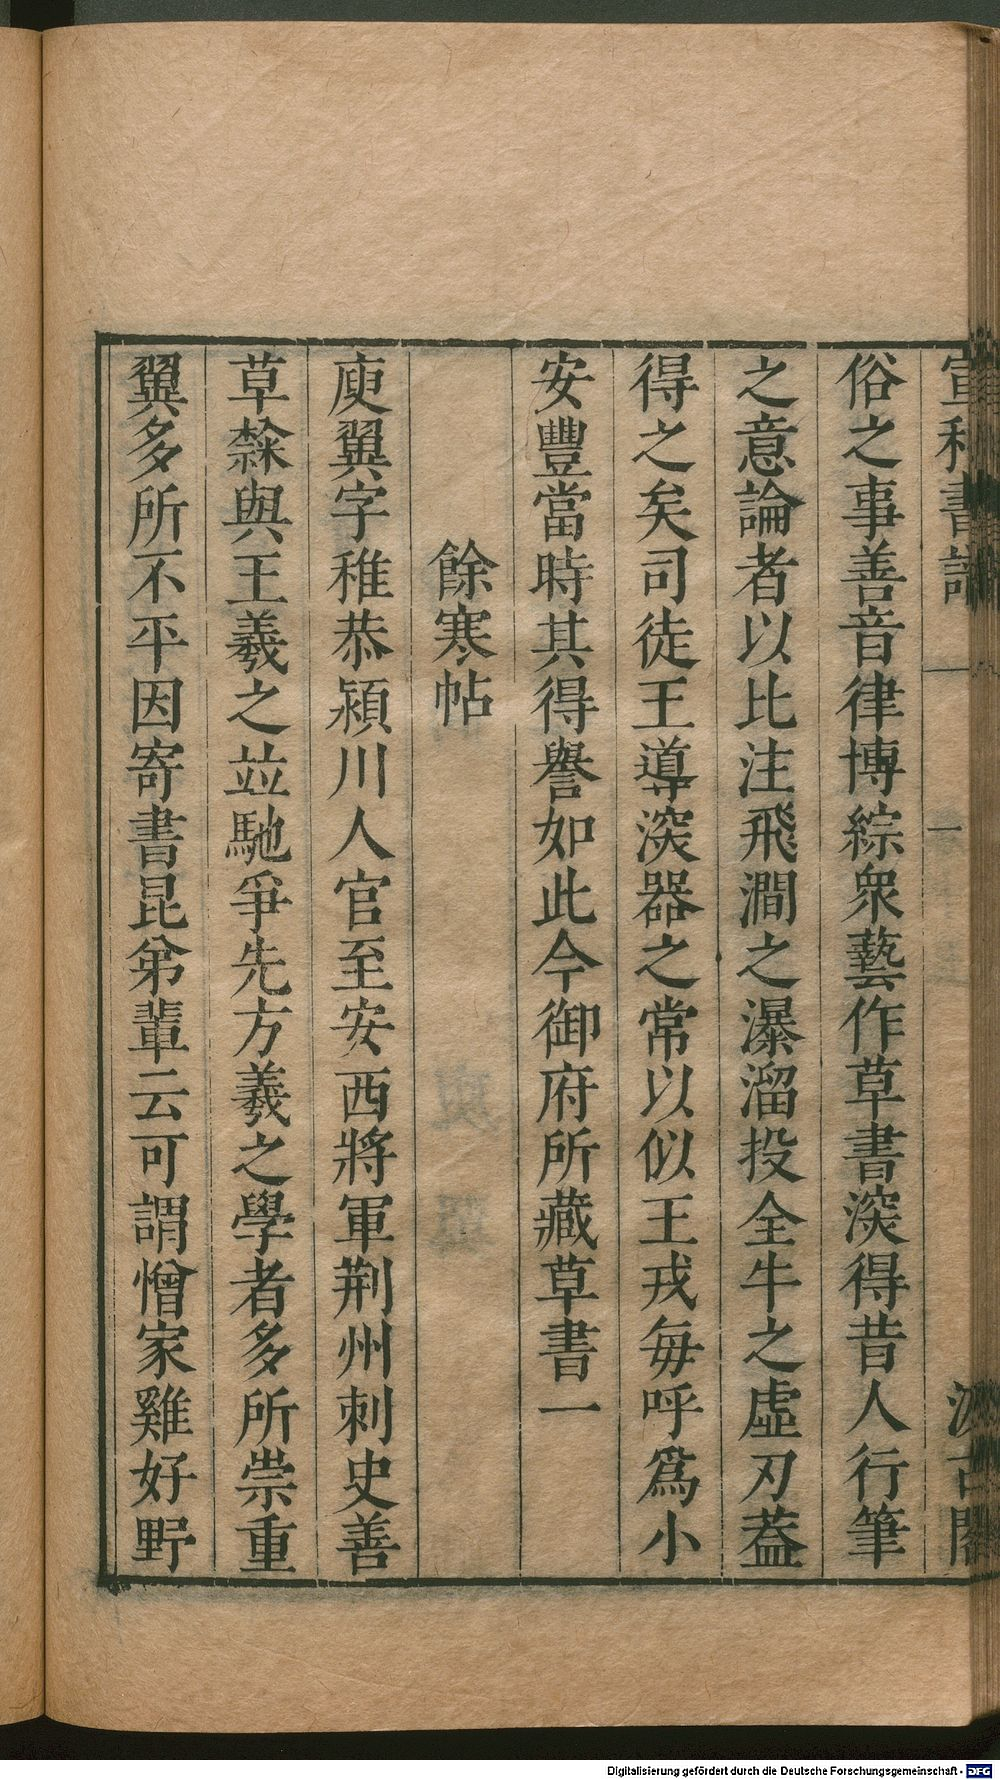 宣和書譜 一 汲古閣
俗之事善音律博綜衆藝作草書湥得昔人行筆
之意論者以比注飛澗之瀑溜投全牛之虛刃葢
得之矣司徒王導湥器之常以似王戎每呼爲小
安豐當時其得譽如此今御府所藏草書一
餘寒帖
庾翼字稚恭潁川人官至安西將軍荆州刺史善
草隸與王羲之竝馳爭先方羲之學者多所崇重
翼多所不平因寄書昆弟輩云可謂憎家雞好野
Digitalisierung gefördert durch die Deutsche Forschungsgemeinschaft - DFG